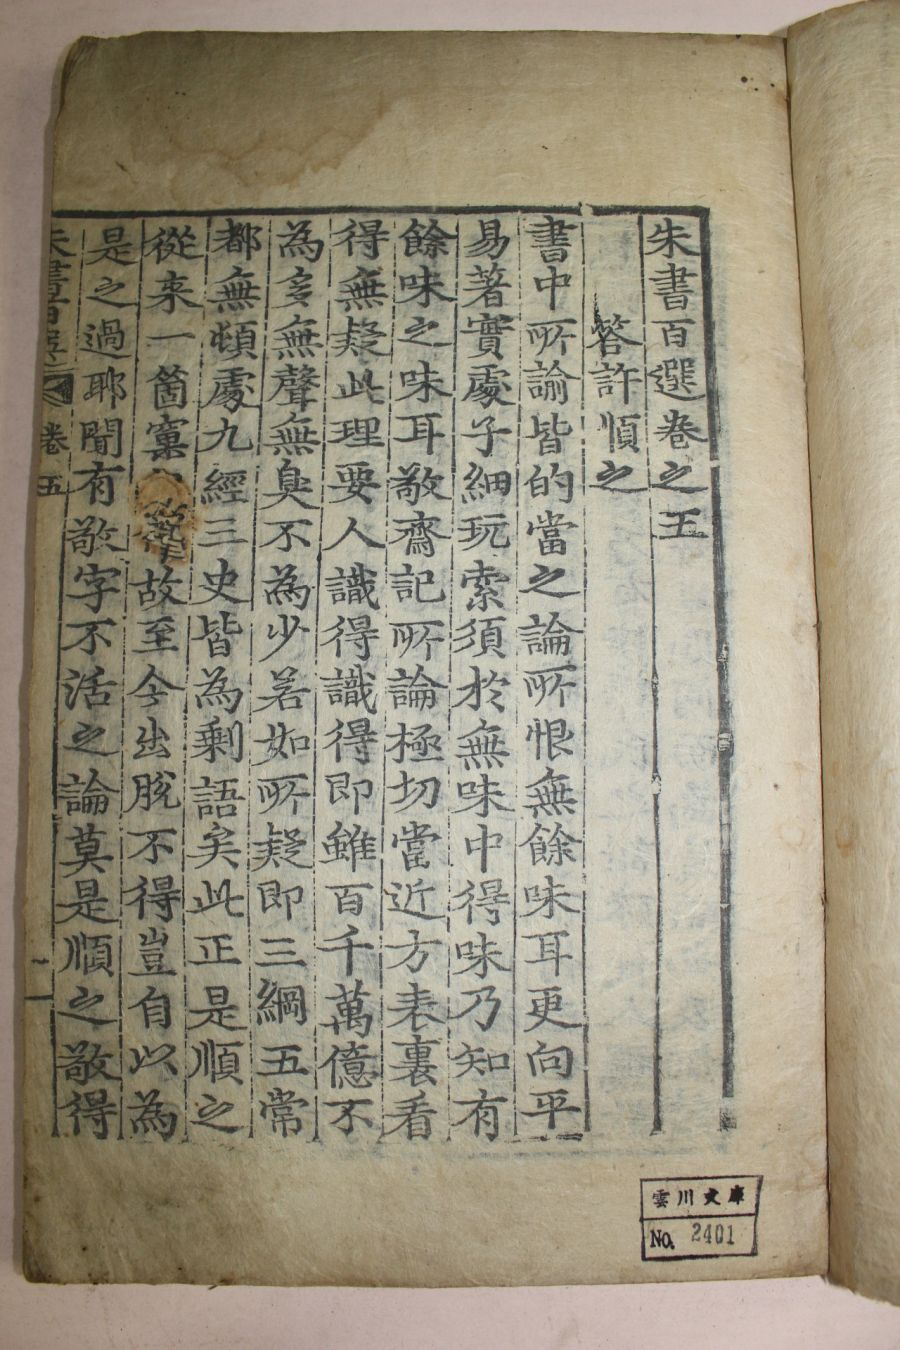 朱書百選卷之五
答許順之
書中所諭皆的當之論所恨無餘味耳更向平
易著實處子細玩索須於無味中得味乃知有
餘味之味耳敬齋記所論極切當近方表裏看
得無疑此理要人識得識得即雖百千萬億不
為多無聲無臭不為少若如所疑即三綱五常
都無頓處九經三史皆為剩語矣此正是順之
從来一箇窠故至今出脫不得豈自以為
是之過耶聞有敬字不活之論莫是順之敬得
朱書百選 卷五 一
雲川文庫
No. 2401